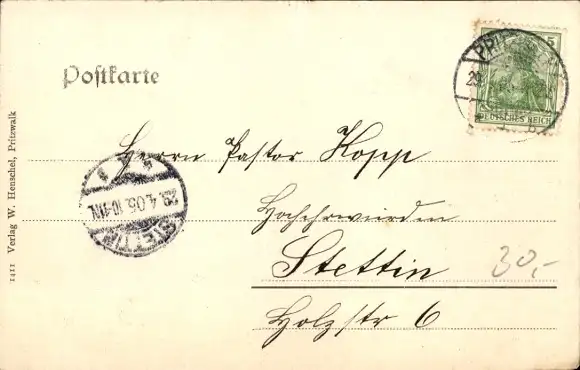 Postkarte
5
DEUTSCHES REICH
Herrn Pastor Kopp
29.4.05.10-11N.
STETTIN
Hochehrwürden
Stettin
30,-
Holzstr 6
1411 Verlag W. Henschel, Pritzwalk